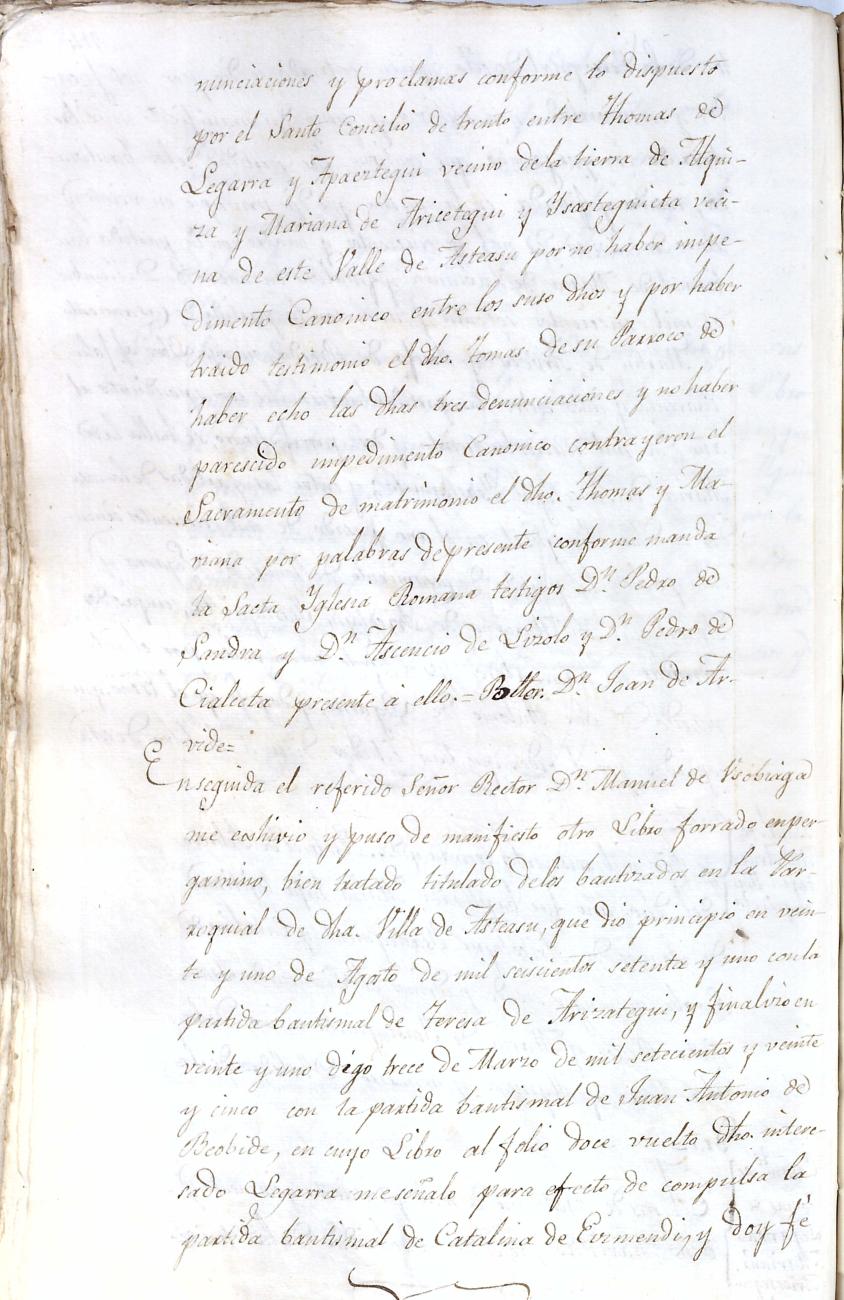 nunciaciones y proclamas conforme lo dispuesto
por el Santo Concilio de trento entre Thomas de
Legarra y Apaeztegui vecino de la tierra de Alqui-
za y Mariana de Aricetegui y Ysasteguieta veci-
na de este Valle de Asteasu por no haber impe-
dimento Canonico entre los suso dhos y por haber
traido testimonio el dho. tomas de su Parroco de
haber echo las dhas tres denunciaciones y no haber
parescido impedimento Canonico contrayeron el
Sacramento de matrimonio el dho. Thomas y Ma-
riana por palabras de presente conforme manda
la Sacta Yglesia Romana testigos Dn. Pedro de
Sandra y Dn. Ascencio de Lizola y Dn. Pedro de
Cialceta presente á ello.= Dn. Joan de Ar-
vide=
Enseguida el referido Señor Rector Dn. Manuel de Usobiaga
me exhivio y puso de manifiesto otro Libro forrado en per-
gamino, bien tratado titulado delos bautizados en la Par-
roquial de dha. Villa de Asteasu, que dio principio en vein-
te y uno de Agosto de mil seiscientos setenta y uno con la
partida bautismal de Teresa de Arizategui, y finalvio en
veinte y uno digo trece de Marzo de mil setecientos y veinte
y cinco con la partida bautismal de Juan Antonio de
Beobide, en cuyo Libro al folio doce vuelto dho. intere-
sado Legarra me señalo para efecto de compulsa la
partida bautismal de Catalina de Eumendi, y doy fé